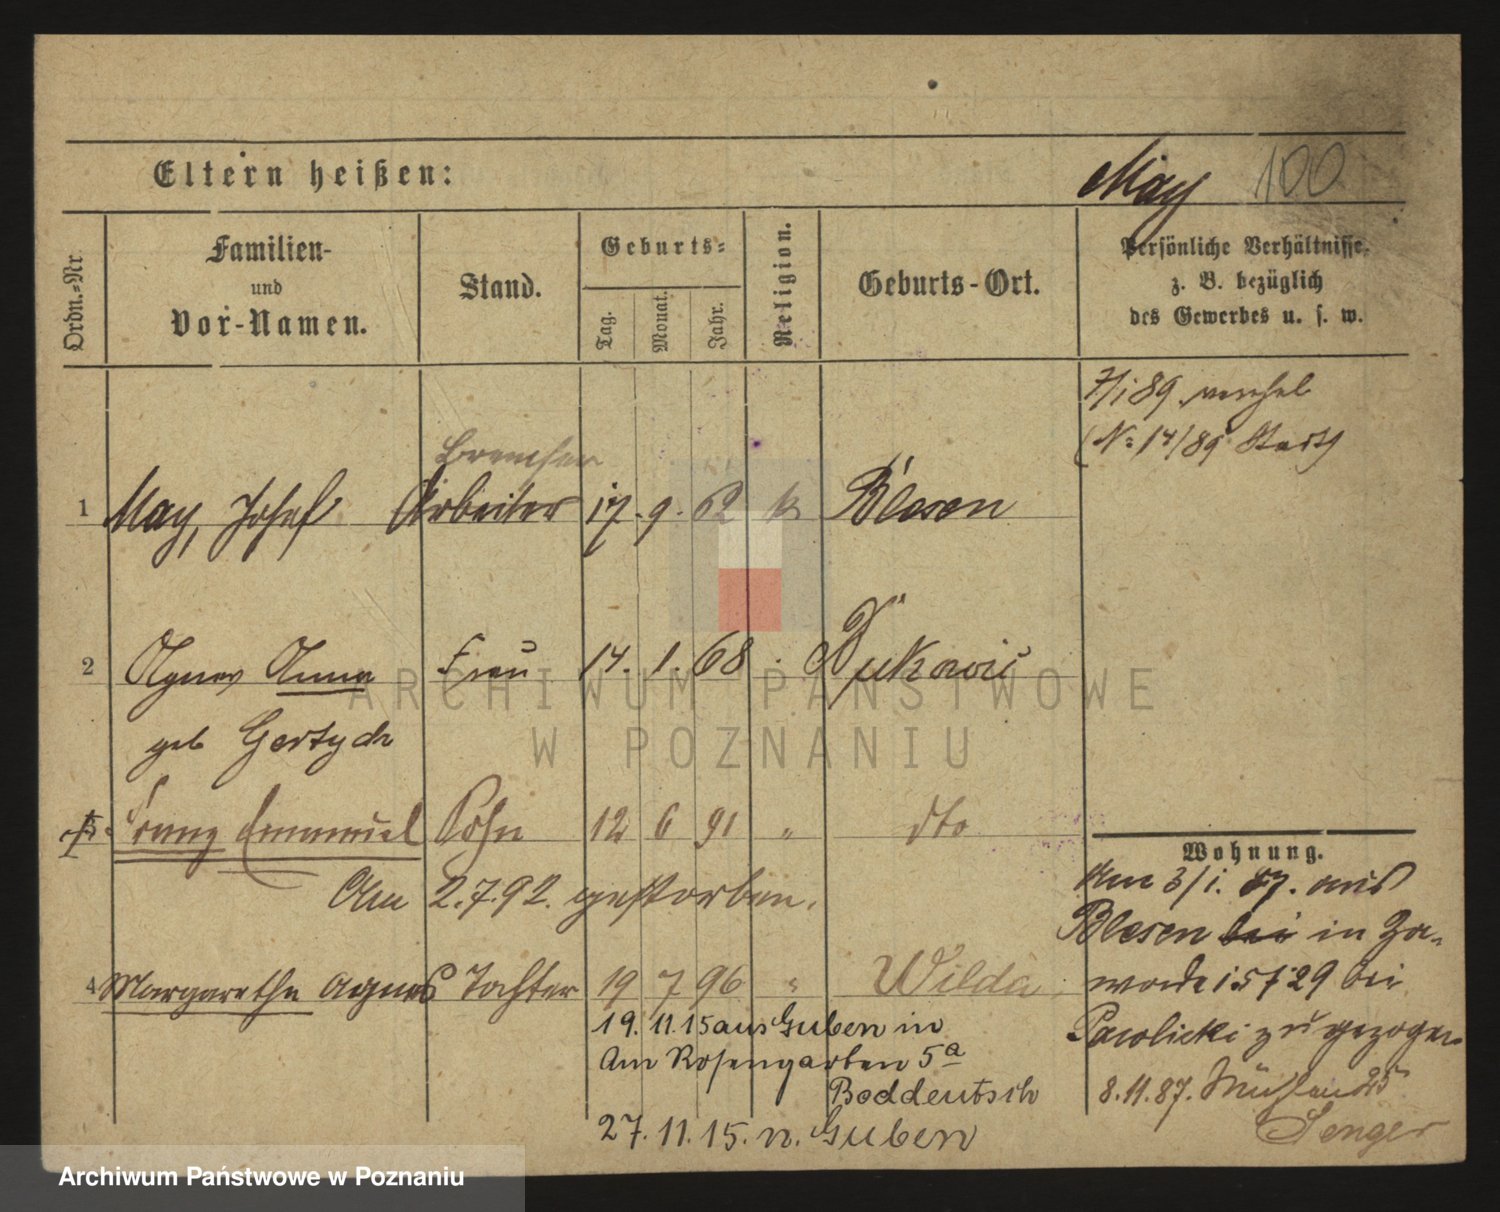 Eltern heißen:
May 100
Ordn.-Nr.
Familien-
und
Vor-Namen.
Stand.
Geburts-
Tag.
Monat.
Jahr.
Religion.
Geburts-Ort.
Persönliche Verhältnisse,
z. B. bezüglich
des Gewerbes u. s. w.
7/1 89
(No 14/89
1 May, Josef Arbeiter 17. 9. 62 k Blesen
2 Agnes Anna Frau 14. 1. 68
geb Gertych
3 Franz Emanuel Sohn 12 6 91 " dto
Am 2.7.92. gestorben.
4 Margarethe Agnes Tochter 19 7 96 " Wilda
19. 11. 15 aus Guben in
Am Rosengarten 5a
Boddeutsch
27. 11. 15. n. Guben
Wohnung.
Am 3/1. 87. aus
Blesen bei in Za-
wade 157 29 bei
Pawlicki zugezogen
8. 11. 87. 25
Senger
ARCHIWUM PAŃSTWOWE
W POZNANIU
Archiwum Państwowe w Poznaniu